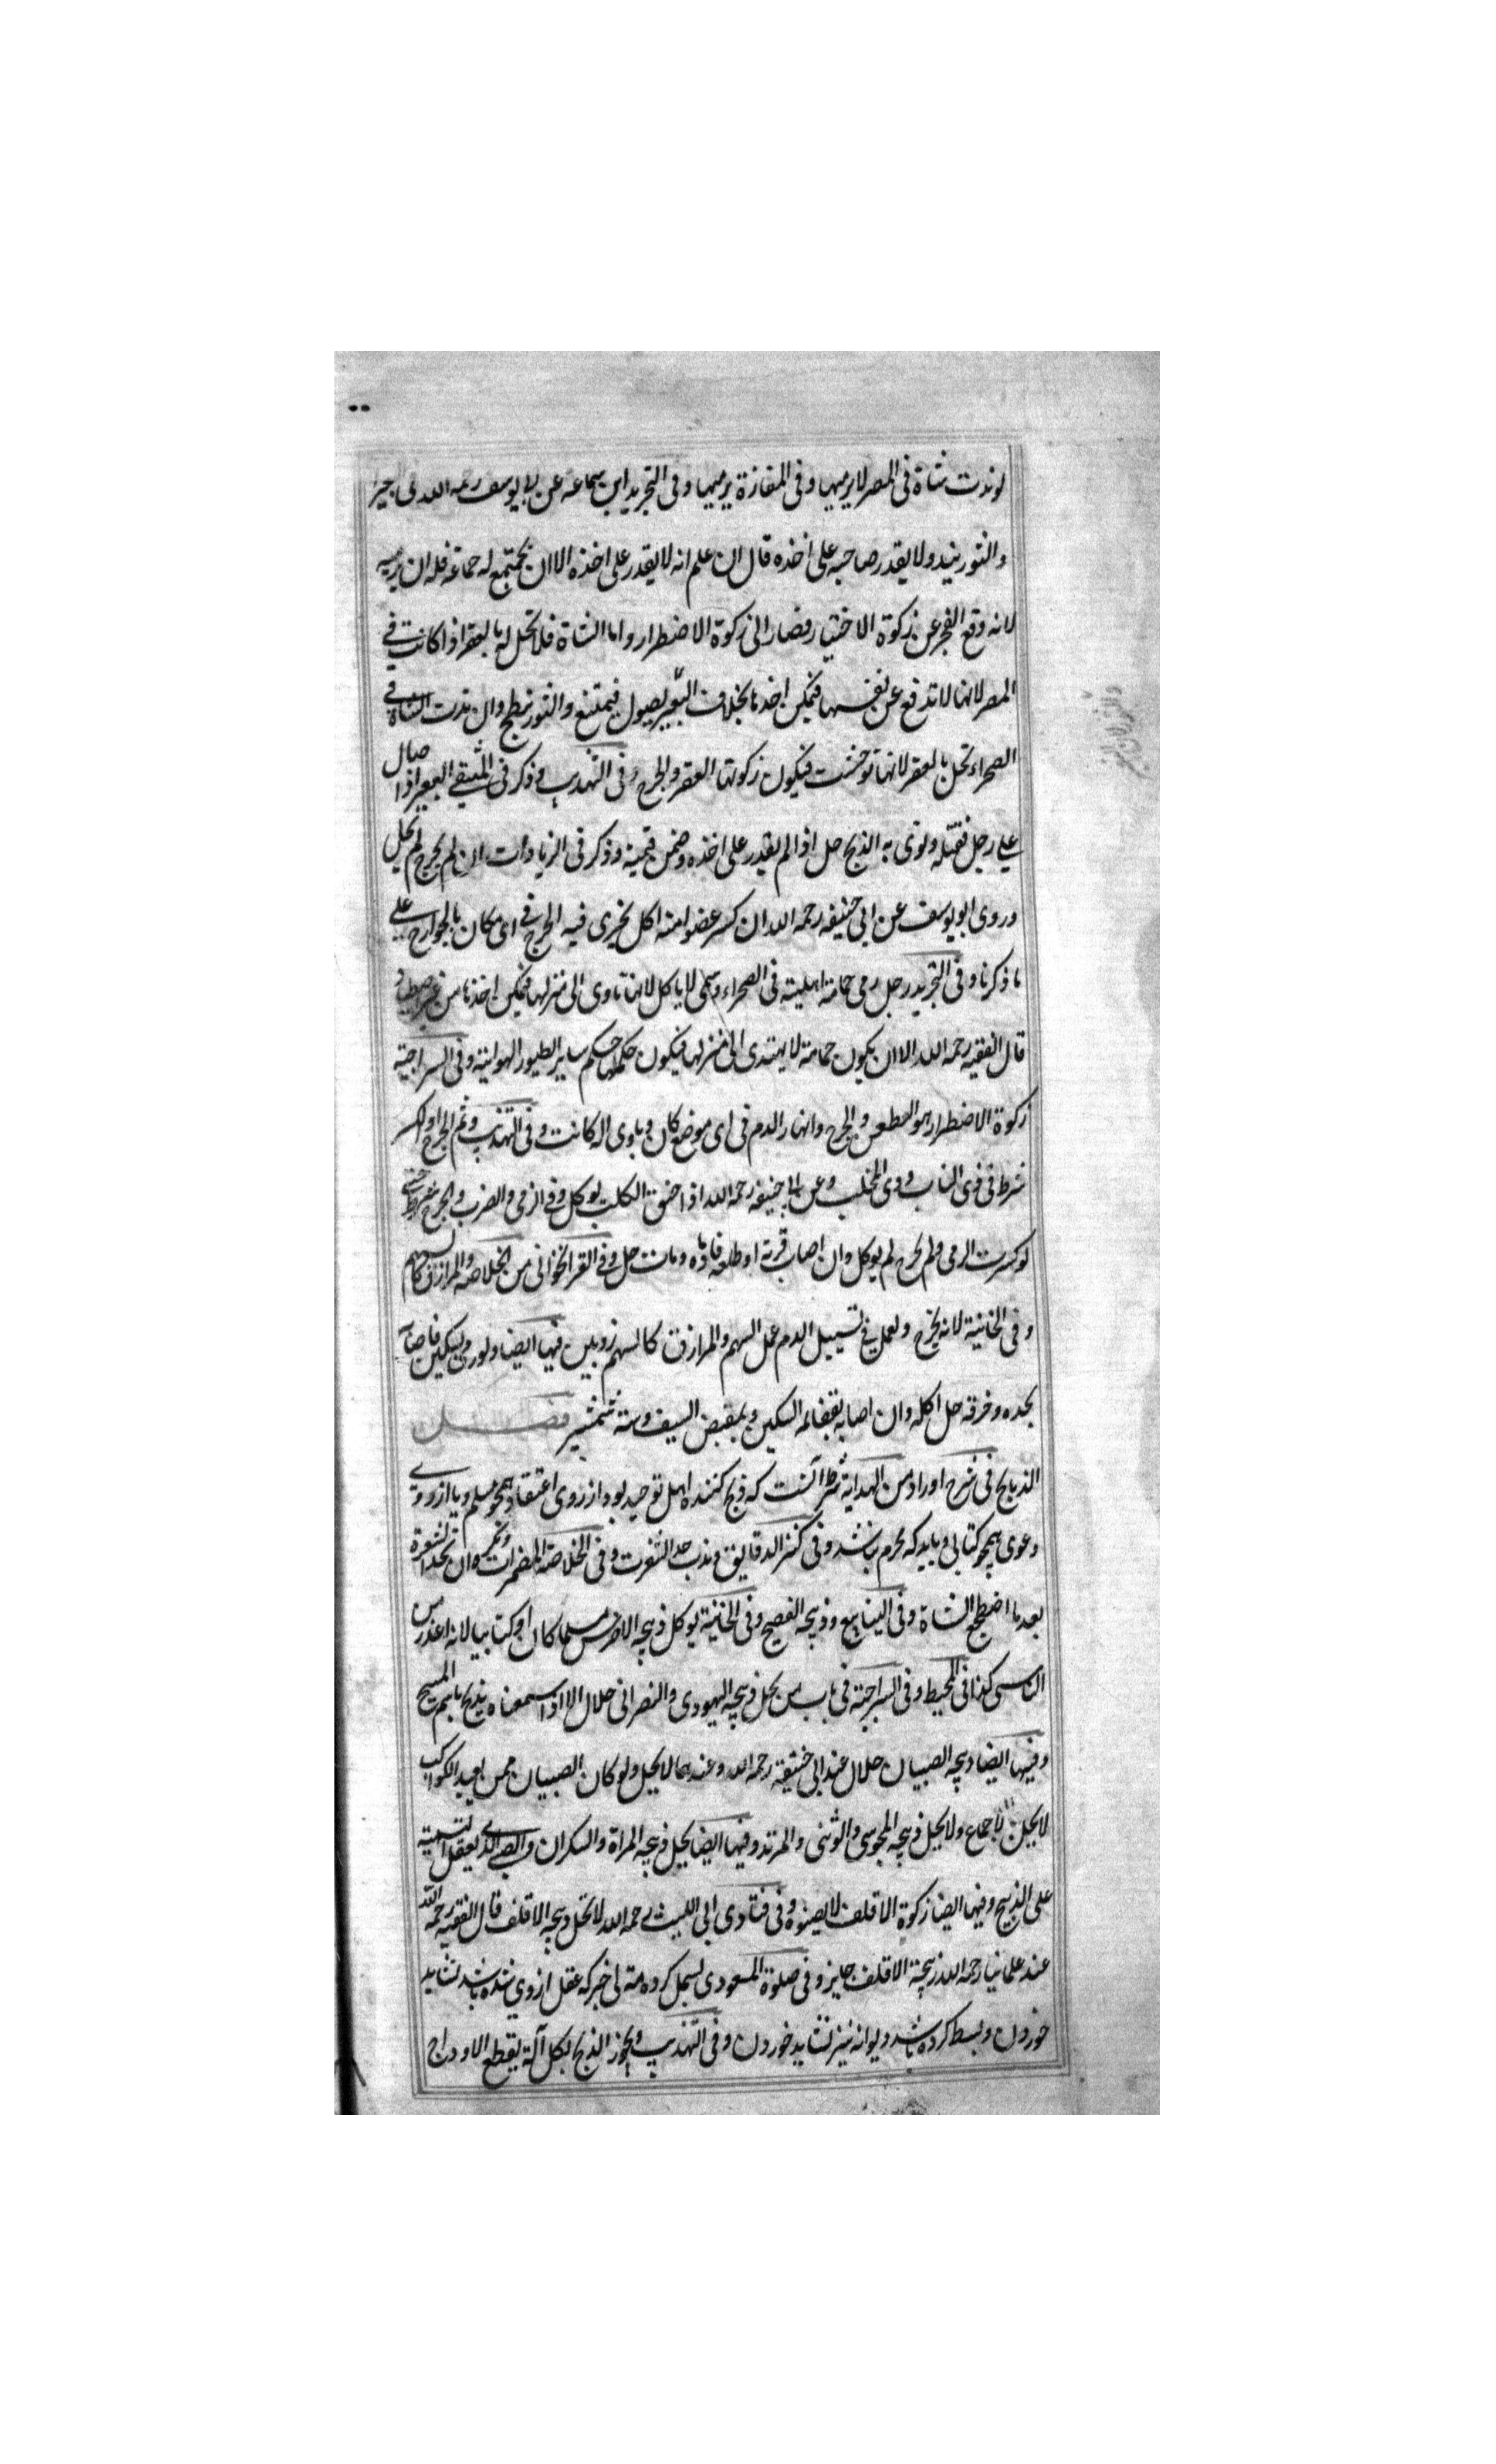 لو ندت شاة فى المصر لا يرميها وفى المفازة يرميها وفى التجريد ابن سماعة عن ابى يوسف رحمه الله فى
والثور يند ولا يقدر صاحبه على اخذه قال ان علم انه لا يقدر على اخذه الا ان يجتمع له جماعة فله ان يرميه
لانه وقع العجز عن زكوة الاختيار فصار الى زكوة الاضطرار واما الشاة فلا تحل له بالعقر اذا كانت فى
المصر لانها لا تدفع عن نفسها فيمكن اخذها بخلاف البعير يصول فيمتنع والثور ينطح وان ندت الشاة فى
الصحراء تحل بالعقر لانها توحشت فيكون زكوتها العقر والجرح وفى التهذيب وذكر فى المنتقى البعير اذا صال
على رجل فقتله ونوى به الذبح حل اذا لم يقدر على اخذه وضمن قيمته وذكر فى الزيادات ان لم يجرح لم يحل
وروى ابو يوسف عن ابى حنيفه رحمه الله ان كسر عضوا منه اكل يجزى فيه الجرح فى اى مكان بالجوارح على
ما ذكرنا وفى التجريد رجل رمى حمامة اهلية فى الصحراء وسمى لا ياكل لانها تاوى الى منزلها فيمكن اخذها من غير
قال الفقيه رحمه الله الا ان يكون حمامة لا يهتدى الى منزلها فيكون حكمها حكم ساير الطيور الهوائية وفى السراجية
زكوة الاضطرار هو الطعن والجرح وانهار الدم فى اى موضع كان وباوى اله كانت وفى التهذيب وثم الجرح او الكسر
شرط فى ذى الناب وذى المخلب وعن ابى حنيفه رحمه الله اذا خنق الكلب يوكل وفى الرمى والضرب والجرح
لو كسرت الرمى ولم يجرح لم يوكل وان اصاب قرنه او ظلفه فادماه ومات حل وفى القراخانى من الخلاصة والمزازق كالسهم
وفى الخانية لانه يخرج ويعمل فى تسييل الدم عمل السهم والمزازق كالسهم زوبين فيها ايضا ولو رمى بسكين فاصابه
بحده وفرقه حل اكله وان اصابه بقفا له السكين وبمقبض السيف دسته شمشير فصل
الذبايح فى شرح اوراد من الهداية شرط آنست كه ذبح كننده اهل توحيد بود از روى اعتقاد همچو مسلم ويا از روى
دعوى همچو كتابى وبايد كه محرم نباشد وفى كنز الدقايق وندب حد الشفرت وفى الخلاصة المضمرات وكره ان يحد الشفرة
بعد ما اضطجع الشاة وفى الينابيع وذبيحه الفصيح وفى الخانية يوكل ذبيحه الاخرس مسلما كان او كتابيا لانه اعذر من
الناسى كذا فى المحيط وفى السراجية فى باب من يحل ذبيحه اليهودى والنصرانى حلال الا اذا سمعناه يذبح باسم المسيح
وفيها ايضا ذبيحه الصبيان حلال عند ابى حنيفة رحمه الله وعندهما لا يحل ولو كان الصبيان ممن يعبد الكواكب
لا يحل بالاجماع ولا يحل ذبيحه المجوسى والوثنى والمرتد وفيها ايضا يحل ذبيحه المراة والسكران والصبى الذى يعقل التسمية
على الذبح وفيها ايضا زكوة الاقلف لا يصنوه وفى فتاوى ابى الليث رحمه الله لا تحل ذبيحه الاقلف قال الفقيه رحمه الله
عند علمائنا رحمه الله ذبيحة الاقلف جايز وفى صلوة المسعودى بسمل كرده مستى بى خبر كه عقل از وى شده باشد نشايد
خوردن وبسط كرده باشد ديوانه نيز نشايد خوردن وفى التهذيب ويجوز الذبح بكل آلة يقطع الاوداج